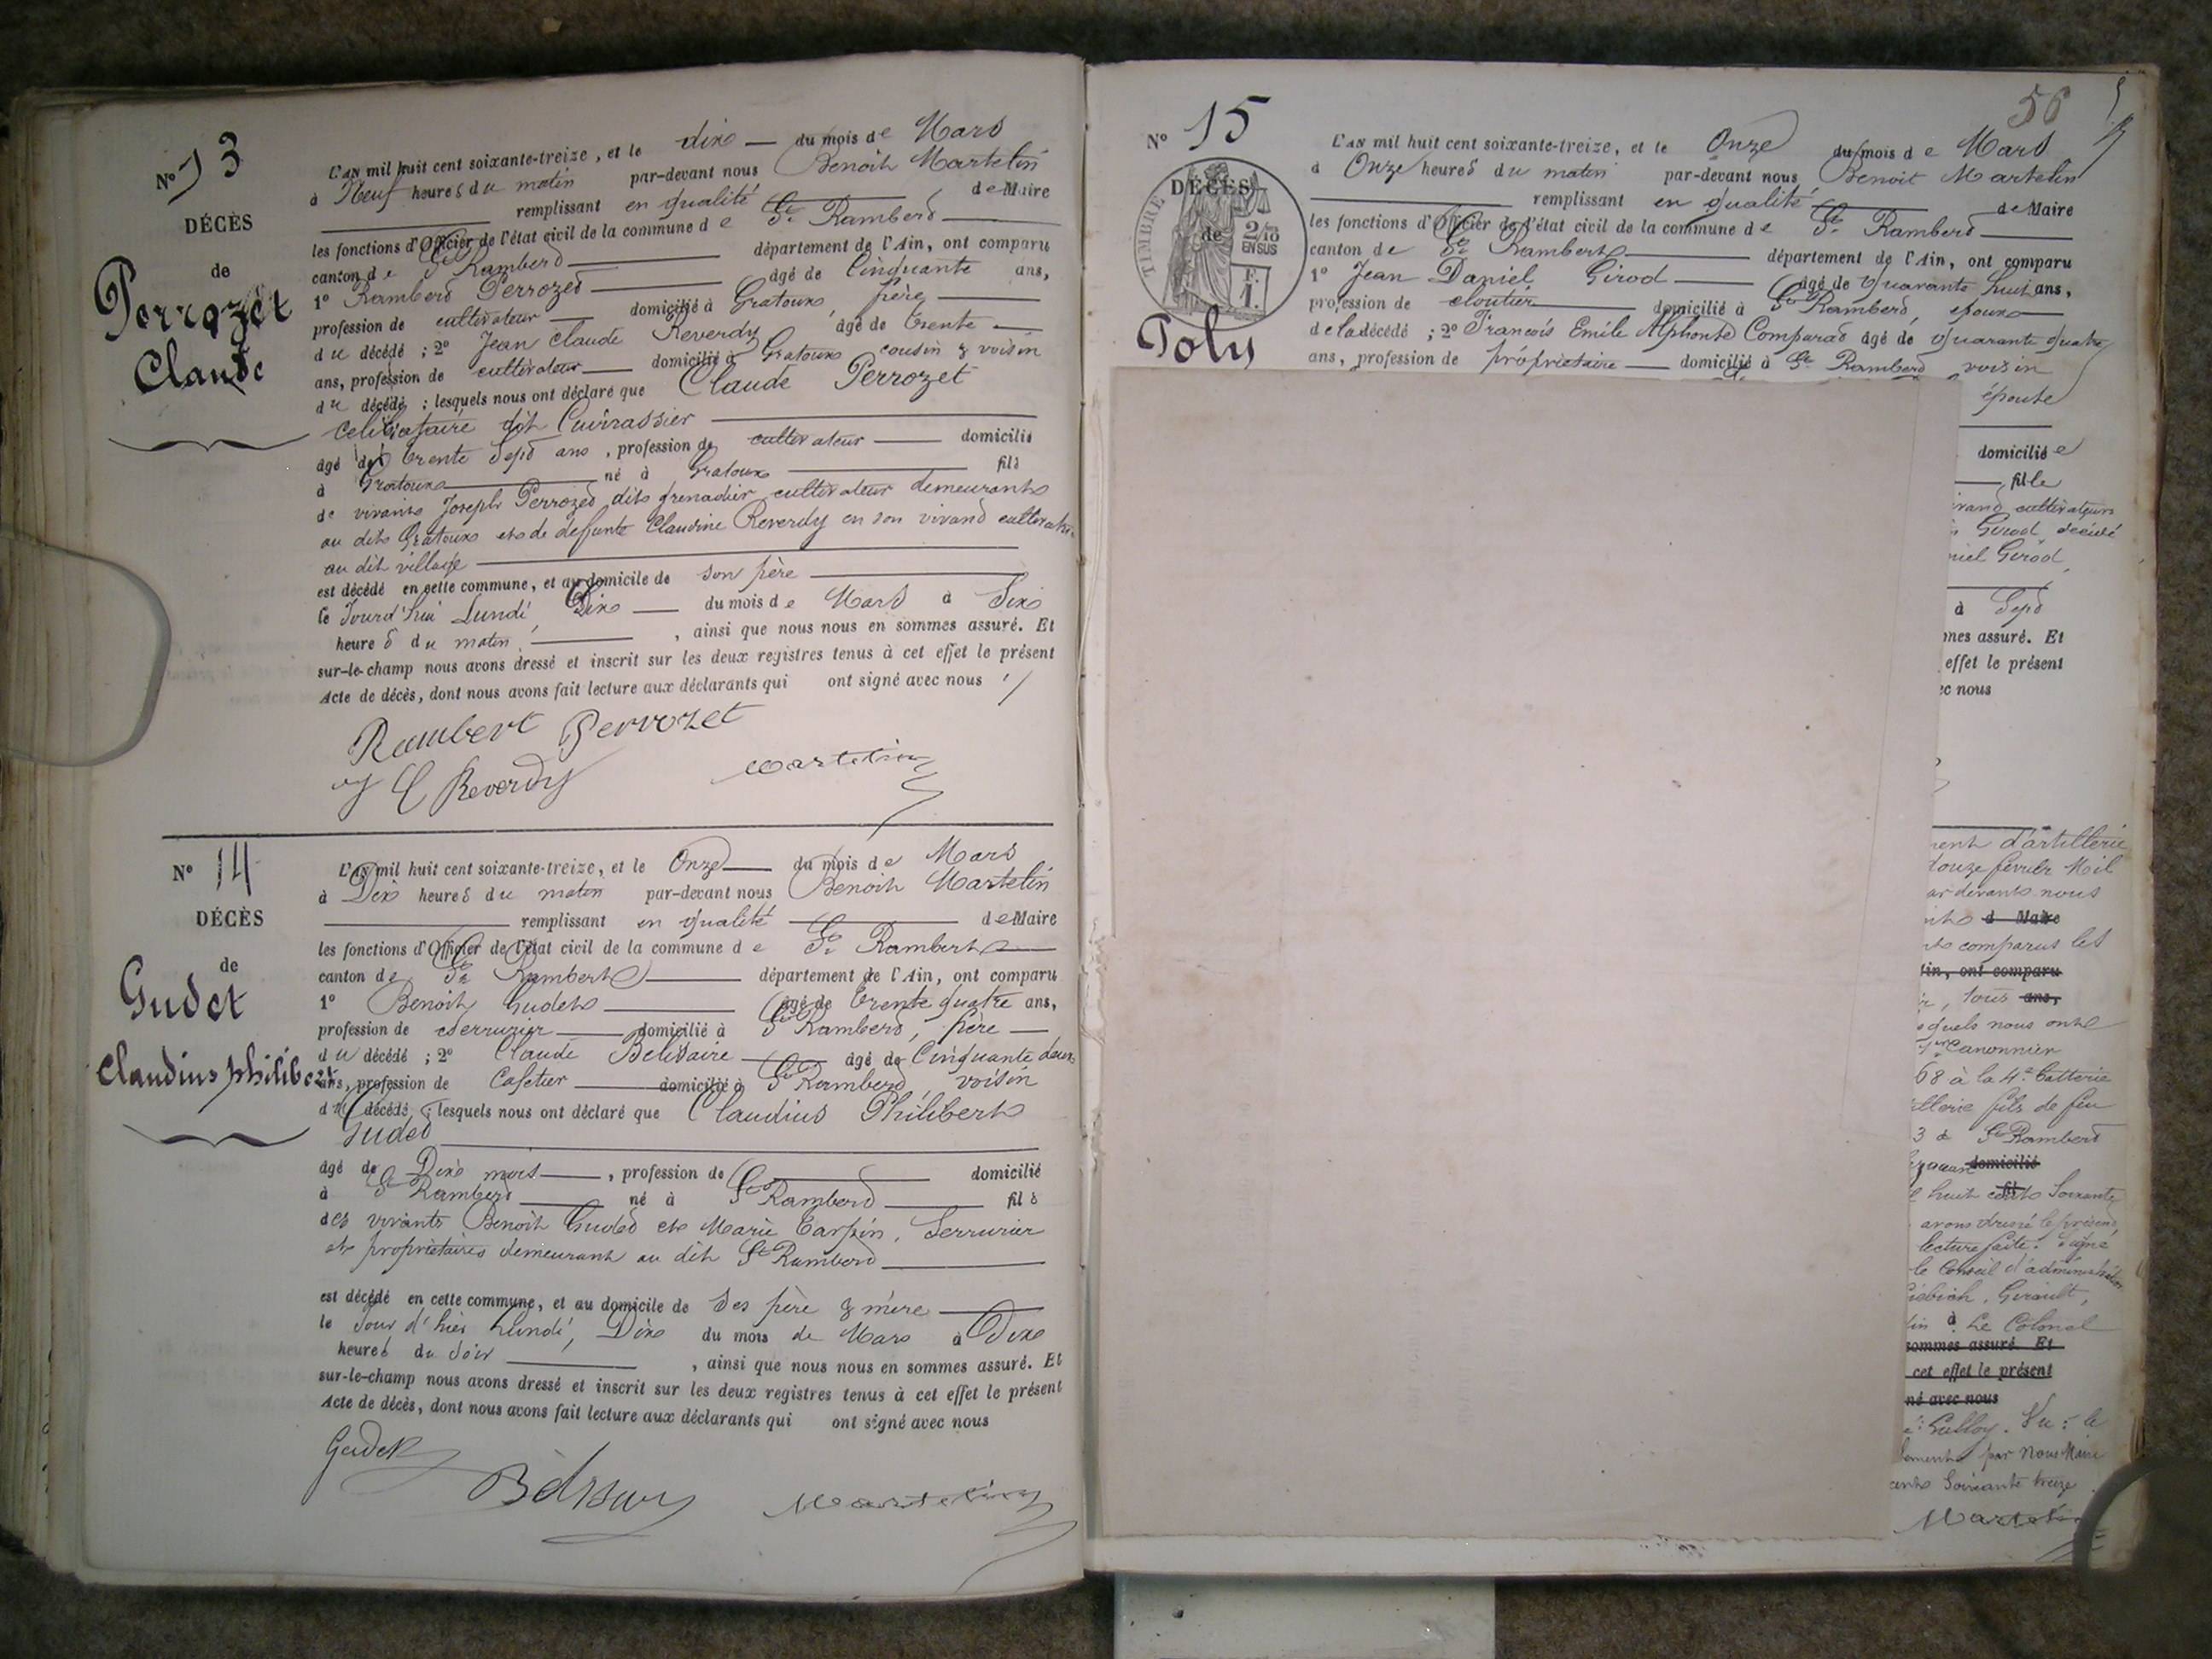 N° 13
DÉCÈS
de
Perrozet
Claude
L'AN mil huit cent soixante-treize, et le dix du mois de Mars
à Neuf heures du matin par-devant nous Benoit Martelin
remplissant en qualité de Maire
les fonctions d'Officier de l'état civil de la commune de St Rambert
canton de St Rambert département de l'Ain, ont comparu
1° Rambert Perrozet âgé de Cinquante ans,
profession de cultivateur domicilié à Gratoux, frère
du décédé ; 2° Jean Claude Reverdy âgé de trente
ans, profession de cultivateur domicilié à Gratoux cousin & voisin
du décédé ; lesquels nous ont déclaré que Claude Perrozet
célibataire dit Cuirassier
âgé de trente sept ans, profession de cultivateur domicilié
à Gratoux né à Gratoux fils
de vivant Joseph Perrozet dit grenadier cultivateur demeurant
au dit Gratoux et de defunte Claudine Reverdy en son vivant cultivatrice
au dit village
est décédé en cette commune, et au domicile de son père
le Jourd'hui Lundi, Dix du mois de Mars à Six
heures du matin, ainsi que nous nous en sommes assuré. Et
sur-le-champ nous avons dressé et inscrit sur les deux registres tenus à cet effet le présent
Acte de décès, dont nous avons fait lecture aux déclarants qui ont signé avec nous
Rambert Perrozet
J C Reverdy Martelin
N° 14
DÉCÈS
de
Gudet
Claudius philibert
L'AN mil huit cent soixante-treize, et le Onze du mois de Mars
à Dix heures du matin par-devant nous Benoit Martelin
remplissant en qualité de Maire
les fonctions d'Officier de l'état civil de la commune de St Rambert
canton de St Rambert département de l'Ain, ont comparu
1° Benoit Gudet âgé de trente quatre ans,
profession de serrurier domicilié à St Rambert, père
du décédé ; 2° Claude Belissaire âgé de Cinquante deux
ans, profession de Cafetier domicilié à St Rambert, voisin
du décédé ; lesquels nous ont déclaré que Claudius Philibert
Gudet
âgé de Dix mois, profession de domicilié
à St Rambert né à St Rambert fils
des vivants Benoit Gudet et Marie Tarpin, Serrurier
et propriétaires demeurant au dit St Rambert
est décédé en cette commune, et au domicile de ses père & mère
le Jour d'hier Lundi, Dix du mois de Mars à Dix
heures du Soir, ainsi que nous nous en sommes assuré. Et
sur-le-champ nous avons dressé et inscrit sur les deux registres tenus à cet effet le présent
Acte de décès, dont nous avons fait lecture aux déclarants qui ont signé avec nous
Gudet
Martelin
56
N° 15
DÉCÈS
de
TIMBRE
2/10
EN SUS
F.
1.
Poly
L'AN mil huit cent soixante-treize, et le Onze du mois de Mars
à Onze heures du matin par-devant nous Benoit Martelin
remplissant en qualité de Maire
les fonctions d'Officier de l'état civil de la commune de St Rambert
canton de St Rambert département de l'Ain, ont comparu
1° Jean Daniel Girod âgé de Quarante huit ans,
profession de cloutier domicilié à St Rambert, époux
de la décédé ; 2° François Emile Alphonse Comparat âgé de Quarante quatre
ans, profession de propriétaire domicilié à St Rambert voisin
épouse
domicilié e
fille
cultivateurs
Girod décédé
Girod,
à Sept
mes assuré. Et
effet le présent
nous
d'artillerie
douze février Mil
devant nous
d Maire
comparus les
ont comparu
tous ans,
quels nous ont
Canonnier
68 à la 4e batterie
fils de feu
3 à St Rambert
domicilié
huit cent Soixante
avons dressé le présent
lecture faite. Signé
le Conseil d'administration
Girault,
à Le Colonel
sommes assuré. Et
cet effet le présent
avec nous
Vu : le
par Nous Maire
Soixante treize
Martelin